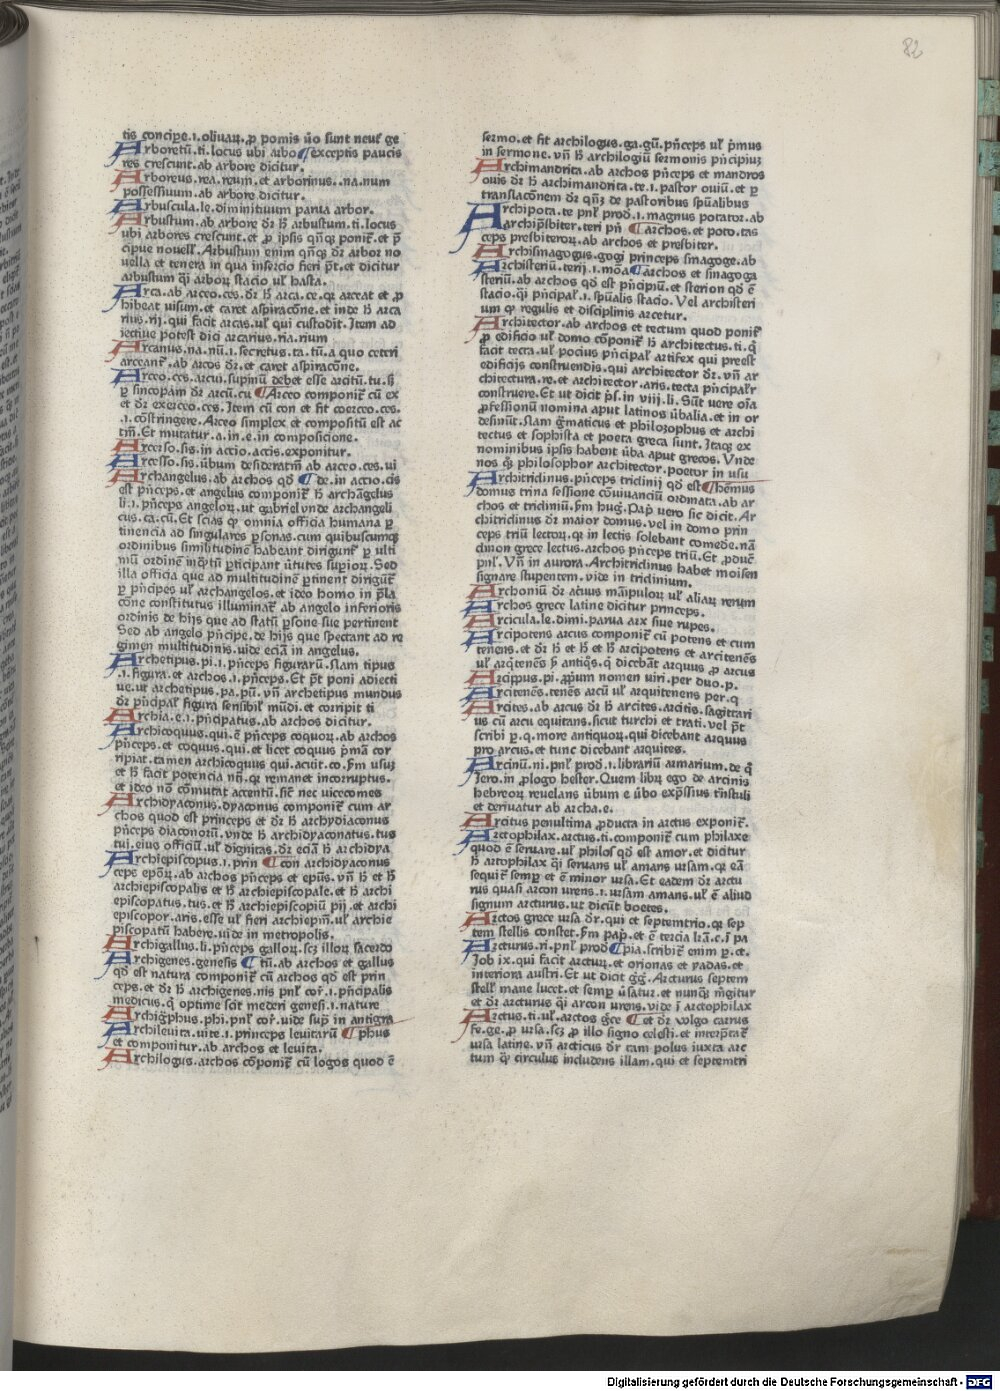 82
tis concipe.i.oliuaꝝ.ꝓ pomis ṽo sunt neuꝉ ge
Arboretũ.ti.locus ubi arbo ¶exceptis paucis
res crescunt.ab arbore dicitur.
Arboreus.rea.reum.et arborinus..na.num
possessiuum.ab arbore dicitur.
Arbuscula.le.diminitiuum parua arbor.
Arbustum.ab arbore dr̃ h̃ arbustum.ti.locus
ubi arbores crescunt.et ꝓ ipsis qñqꝫ ponit̃.et p̃
cipue nouell̃.Arbustum enim qñqꝫ dr̃ arbor no
uella et tenera in qua insercio fieri pt̃.et dicitur
arbustum q̃i arboꝝ stacio uꝉ hasta.
Arca.ab arceo.ces.dr̃ h̃ arca.ce.qꝛ arceat et ꝓ
hibeat uisum.et caret aspiracõne.et inde h̃ arca
rius.rij.qui facit arcas.uꝉ qui custodit.Item ad
iectiue potest dici arcarius.ria.rium
Arcanus.na.nũ.i.secretus.ta.tũ.a quo ceteri
arceant̃.ab arcos dr̃.et caret aspiracõne.
Arceo.ces.arcui.supinũ debet esse arcitũ.tu.s̃
ꝑ sincopam dr̃ arcũ.cu ¶Arceo componit̃ cũ ex
et dr̃ exerceo.ces.Item cũ con et fit coerceo.ces.
.i.cõstringere.Arceo simplex et compositũ est ac
tm̃.Et mutatur.a.in.e.in composicione.
Arcerso.sis.in actio.actis.exponitur.
Arcesso.sis.ũbum desideratm̃ ab arceo.ces.ui
Archangelus.ab archos qd̃ ¶de.in actio.cis
est p̃nceps.et angelus componit̃ h̃ archãgelus
li.i.p̃nceps angeloꝝ.ut gabriel vnde archangeli
cus.ca.cũ.Et scias qꝫ omnia officia humana ꝑ
tinencia ad singulares ꝑsonas.cum quibuscumqꝫ
ordinibus similitudinẽ habeant dirigunt̃ ꝑ ulti
mũ ordinẽ inq̃tũ ꝑticipant ũtutes supꝛioꝝ.Sed
illa officia que ad multitudinẽ ꝑtinent dirigũt̃
ꝑ p̃ncipes uꝉ archangelos.et ideo homo in p̃la
cõne constitutus illuminat̃ ab angelo inferioris
ordinis de hijs que ad statũ ꝑsone sue pertinent
Sed ab angelo p̃ncipe.de hijs que spectant ad re
gimen multitudinis.uide eciã in angelus.
Archetipus.pi.i.p̃nceps figurarũ.Nam tipus
.i.figura.et archos.i.p̃nceps.Et pt̃ poni adiecti
ue.ut archetipus.pa.pũ.vñ archetipus mundus
dr̃ p̃ncipal̃ figura sensibil̃ mũdi.et corripit ti
Archia.e.i.p̃ncipatus.ab archos dicitur.
Archicoquus.qui.ẽ p̃nceps coquoꝝ.ab archos
p̃nceps.et coquus.qui.et licet coquus p̃mã cor
ripiat.tamen archicoquus qui.acuit.co.ẝm usuꝫ
et h̃ facit potencia nñ.qꝛ remanet incorruptus.
et ideo nõ cõmutat accentũ.sic̃ nec vicecomes
Archidyaconus.dyaconus componit̃ cum ar
chos quod est princeps et dr̃ h̃ archydiaconus
p̃nceps diaconorũ.vnde h̃ archidyaconatus.tus
tui.eius officiũ.uꝉ dignitas.dr̃ eciã h̃ archidya
Archiepiscopus.i.prin ¶con archidyaconus
ceps epõꝝ.ab archos p̃nceps et epũs.vñ h̃ et h̃
archiepiscopalis et h̃ archiepiscopale.et h̃ archi
episcopatus.tus.et h̃ archiepiscopiũ pij.et archi
episcopor.aris.esse uꝉ fieri archiepm̃.uꝉ archie
piscopatũ habere.uide in metropolis.
Archigallus.li.p̃nceps galloꝝ.scꝫ illoꝝ sacerdo
Archigenes.genesis ¶tũ.ab archos et gallus
qd̃ est natura componit̃ cũ archos qd̃ est prin
ceps.et dr̃ h̃ archigenes.nis pnl̃ cor̃.i.p̃ncipalis
medicus.q̃ optime scit mederi genesi.i.nature
Archigr̃phus.phi.pnl̃ cor̃.uide sup̃ in antigra
Archileuita.uite.i.princeps leuitarũ ¶phus
et componitur.ab archos et leuita.
Archilogus.archos cõponit̃ cũ logos quod ẽ
sermo.et fit archilogus.ga.gũ.p̃nceps uꝉ p̃mus
in sermone.vñ h̃ archilogiũ sermonis p̃ncipiuꝫ
Archimandrita.ab archos p̃nceps et mandros
ouis dr̃ h̃ archimandrita.te.i.pastor ouiũ.et ꝑ
translacõnem dr̃ qñqꝫ de pastoribus sp̃ualibus
Archipota.te pnl̃ prod̃.i.magnus potator.ab
Archip̃sbiter.teri p̃ñ ¶archos.et poto.tas
ceps presbiteroꝝ.ab archos et presbiter.
Archisinagogus.gogi princeps sinagoge.ab
Archisteriũ.terij.i.mõa ¶archos et sinagoga
steriũ.ab archos qd̃ est p̃ncipiũ.et sterion qd̃ ẽ
stacio.q̃i p̃ncipal̃.i.sp̃ualis stacio.Vel archisteri
um qꝛ regulis et disciplinis arcetur.
Architector.ab archos et tectum quod ponit̃
ꝓ edificio uꝉ domo cõponit̃ h̃ architectus.ti.q̃
facit tecta.uꝉ pocius p̃ncipal̃ artifex qui preest
edificijs construendis.qui architector dr̃.vñ ar
chitectura.re.et architector.aris.tecta p̃ncipalr̃
construere.Et ut dicit p̃s.in viij.li.Sũt uere oĩa
ꝓfessionũ nomina aput latinos ũbalia.et in or
desinũt.Nam g̃maticus et philozophus et archi
tectus et sophista et poeta greca sunt.Itaqꝫ ex
nominibus ipsis habent ũba aput grecos.Vnde
nos q̃ꝫ philosophor architector.poetor in usu
Architriclinus.p̃nceps triclinij qd̃ est ¶hẽmus
domus trina sessione cõuiuanciũ ordinata.ab ar
chos et triclinũ.ẝm hug̃.Pap̃ uero sic dicit.Ar
chitriclinus dr̃ maior domus.vel in domo prin
ceps triũ lectoꝝ.qꝛ in lectis solebant comede.nã
clinon grece lectus.archos p̃nceps triũ.Et ꝓducẽ
pnl̃.Vñ in aurora.Architriclinus habet moisen
signare stupentem.vide in triclinium.
Archoniũ dr̃ aruus manipuloꝝ uꝉ aliaꝝ rerum
Archos grece latine dicitur princeps.
Arcicula.le.dimi.parua arx siue rupes.
Arcipotens arcus componit̃ cũ potens et cum
tenens.et dr̃ h̃ et h̃ et h̃ arcipotens et arcitenẽs
uꝉ arq̃tenẽs ẜm̃ antiq̃s.q̃ dicebant arquus ꝓ arcus
Arcippus.pi.ꝓp̃um nomen uiri.per duo.p.
Arcitenẽs.tenẽs arcũ uꝉ arquitenens per.q
Arcites.ab arcus dr̃ h̃ arcites.arcitis.sagittari
us cũ arcu equitans.sicut turchi et trati.vel pt̃
scribi ꝑ.q.more antiquoꝝ.qui dicebant arquus
pro arcus.et tunc dicebant arquites.
Arcinũ.ni.pnl̃ prod̃.i.librariũ armarium.de q̃
Jero.in ꝓlogo hester.Quem libꝝ ego de arcinis
hebreoꝝ reuelans ũbum e ũbo exp̃ssius tñstuli
et deriuatur ab archa.e.
Arcitus penultima ꝓducta in arctus exponit̃.
Arctophilax.arctus.ti.componit̃ cum philaxe
quod ẽ seruare.uꝉ philos qd̃ est amor.et dicitur
h̃ artophilax q̃i seruans uꝉ amans ursam.qꝛ eã
sequit̃ semꝑ et ẽ minor ursa.Et eadem dr̃ arctu
rus quasi arcon urens.i.ursam amans.uꝉ ẽ aliud
signum arcturus.ut dicũt boetes.
Arctos grece ursa dr̃.qui et septemtrio.qꝛ sep
tem stellis constet.ẝm pap̃.et ẽ tercia lrã.c.ĩ pa
Arcturus.ri.pnl̃ prod̃ ¶pia.scribit̃ enim ꝑ.ct.
Job ix.qui facit arctuꝝ.et orionas et yadas.et
interiora austri.Et ut dicit g̃g̃.Arcturus septem
stell̃ mane lucet.et semꝑ ũsatur.et nunq̃ꝫ m̃gitur
et dr̃ arcturus q̃i arcon urens.vide ĩ arctophilax
Arctus.ti.uꝉ.arctos g̃ce ¶et dr̃ volgo carrus
fe.ge.ꝓ ursa.scꝫ ꝓ illo signo celesti.et interp̃tat̃
ursa latine.vñ arcticus dr̃ tam polus iuxta arc
tum q̃ꝫ circulus includens illam.qui et septemtri
Digitalisierung gefördert durch die Deutsche Forschungsgemeinschaft - DFG